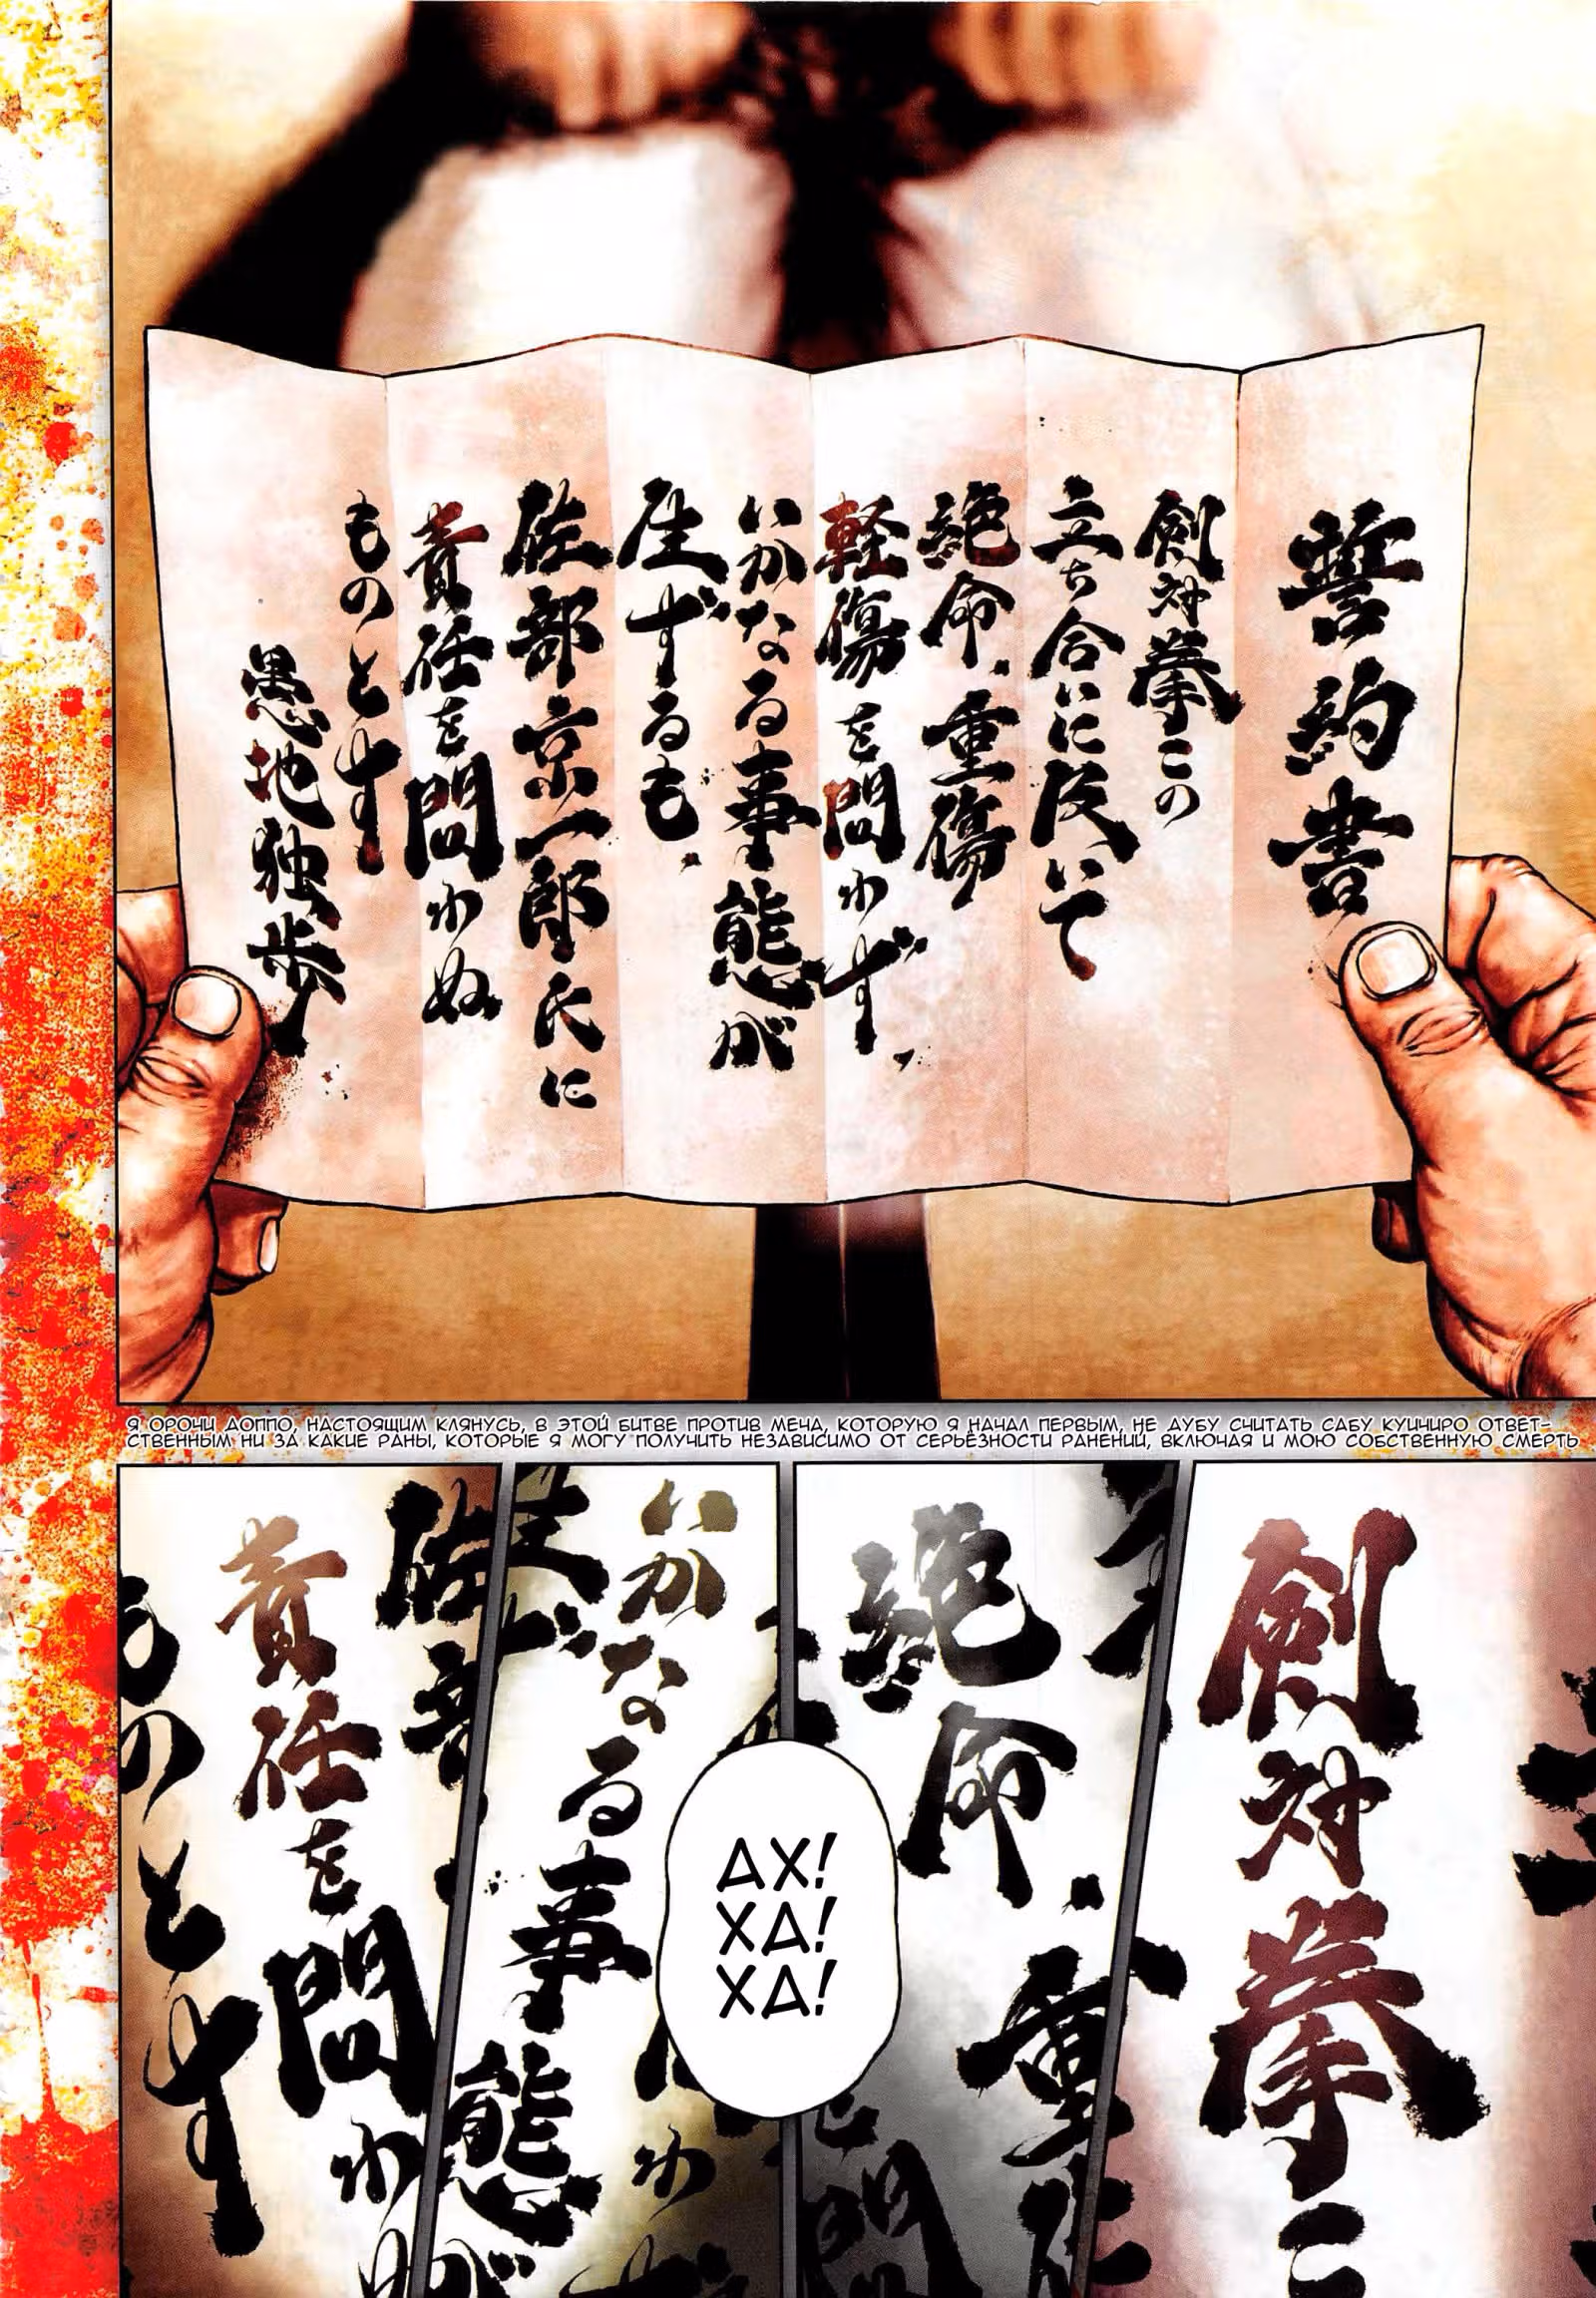 誓約書
剣対拳この
立ち合いに及いて
絶命、重傷
軽傷を問わず、
いかなる事態が
生ずるも、
佐部京一郎氏に
責任を問わぬ
ものとす
愚地独歩
Я ОРОЧИ ДОППО, НАСТОЯЩИМ КЛЯНУСЬ, В ЭТОЙ БИТВЕ ПРОТИВ МЕЧА, КОТОРУЮ Я НАЧАЛ ПЕРВЫМ, НЕ ДУБУ СЧИТАТЬ САБУ КУИЧИРО ОТВЕТ-
СТВЕННЫМ НИ ЗА КАКИЕ РАНЫ, КОТОРЫЕ Я МОГУ ПОЛУЧИТЬ НЕЗАВИСИМО ОТ СЕРЬЁЗНОСТИ РАНЕНИЙ, ВКЛЮЧАЯ И МОЮ СОБСТВЕННУЮ СМЕРТЬ
剣対拳こ
絶命、重
いかなる事態が
佐部
責任を問わぬ
ものとす
АХ!
ХА!
ХА!